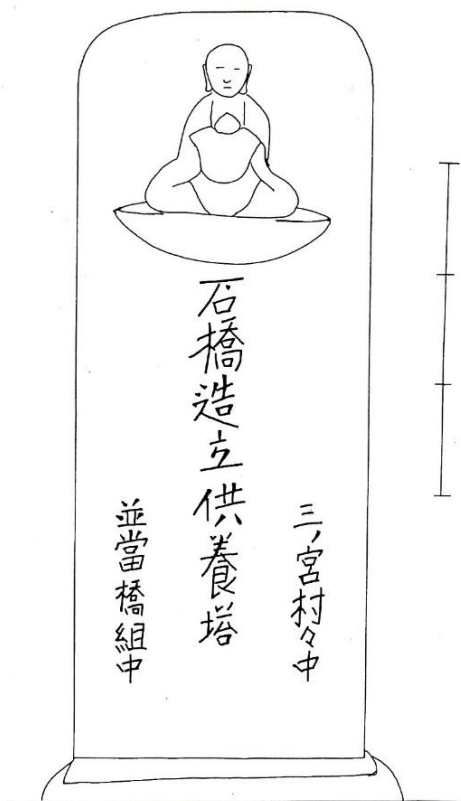 三ノ宮村々中
石橋造立供養塔
並當橋組中